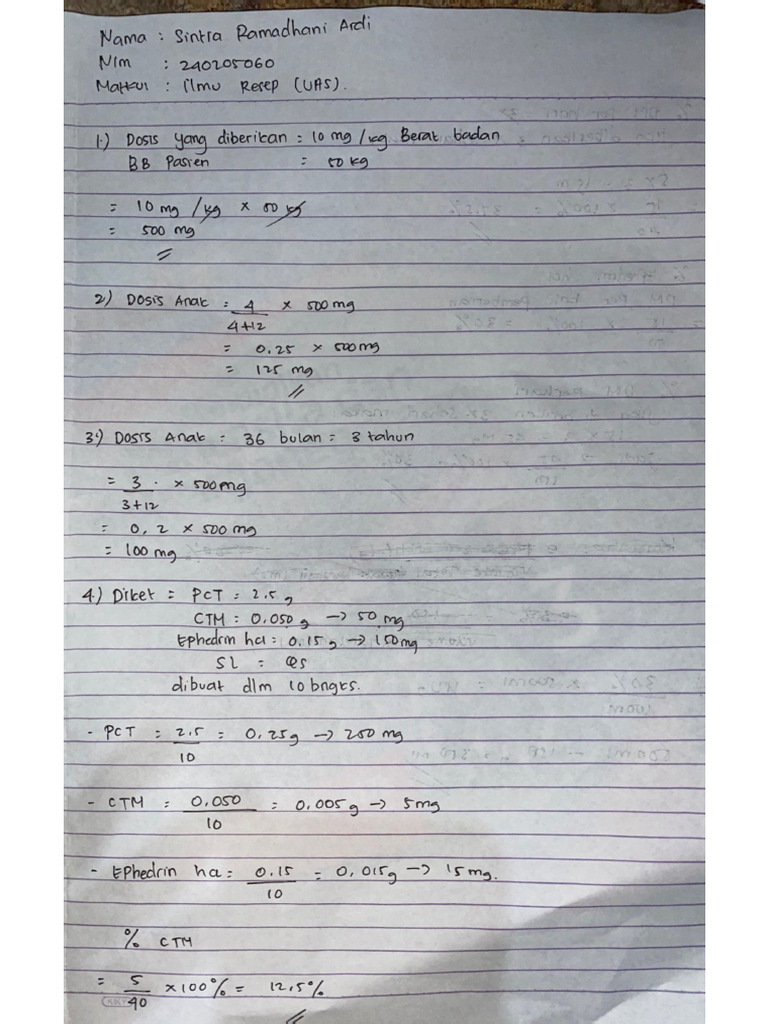 Nama : Sintra Ramadhani Ardi
NIm : 240205060
Matkul : Ilmu Resep (UAS).
1.) Dosis yang diberikan = 10 mg/kg Berat badan
BB Pasien = 50 kg
= 10 mg/kg x 50 kg
= 500 mg
2) Dosis Anak = 4/4+12 x 500 mg
= 0,25 x 500 mg
= 125 mg
3.) Dosis Anak = 36 bulan = 3 tahun
= 3/3+12 x 500 mg
= 0,2 x 500 mg
= 100 mg
4.) Diket = PCT = 2.5 g
CTM : 0.050 g → 50 mg
Ephedrin hcl = 0.15 g → 150 mg
SL = Qs
dibuat dlm 10 bngks.
- PCT = 2.5/10 = 0,25 g → 250 mg
- CTM = 0.050/10 = 0,005 g → 5 mg
- Ephedrin hcl = 0.15/10 = 0,015 g → 15 mg.
% CTM
= 5/40 x 100% = 12,5%